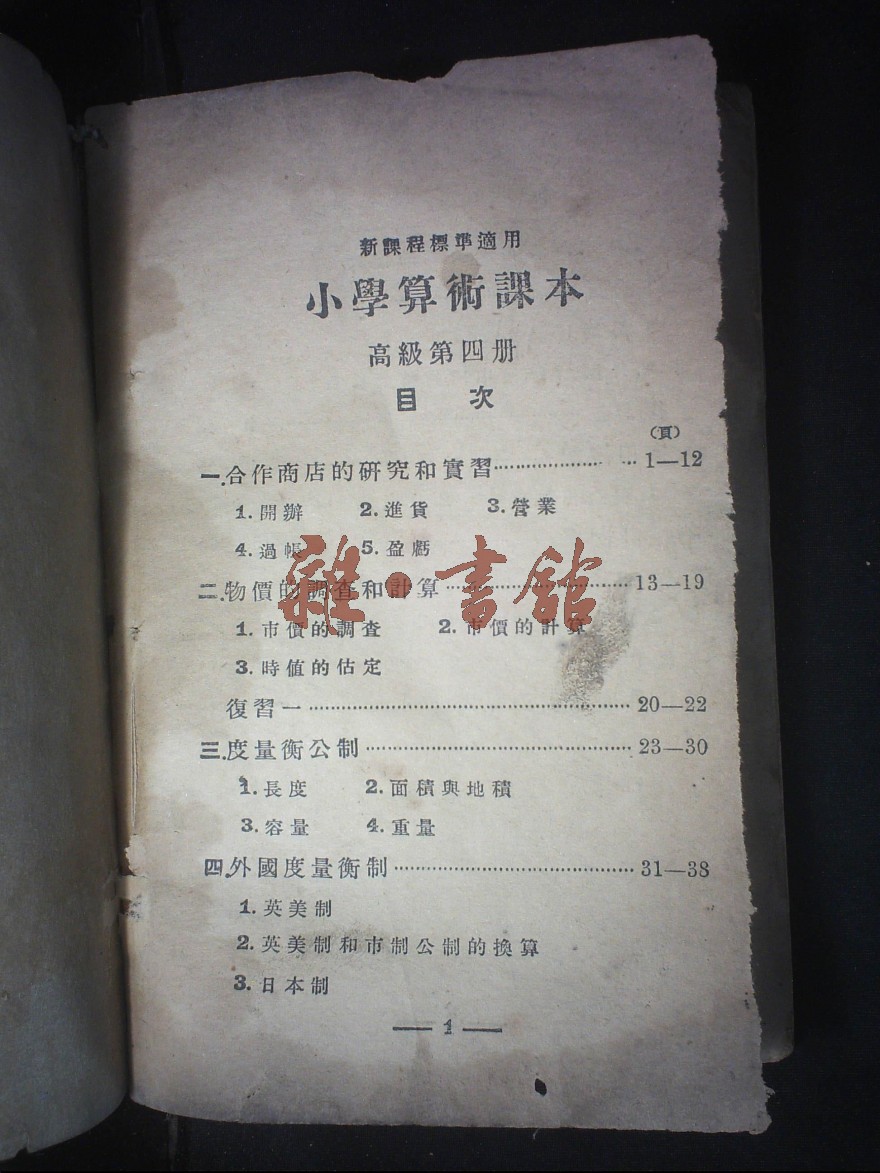 新課程標準適用
小學算術課本
高級第四册
目 次
(頁)
一.合作商店的研究和實習…………………1—12
1.開辦 2.進貨 3.營業
4.過帳 5.盈虧
二.物價的調查和計算…………………13—19
1.市價的調查 2.市價的計算
3.時值的估定
復習一…………………20—22
三.度量衡公制…………………23—30
1.長度 2.面積與地積
3.容量 4.重量
四.外國度量衡制…………………31—38
1.英美制
2.英美制和市制公制的換算
3.日本制
— 1 —
雜·書館